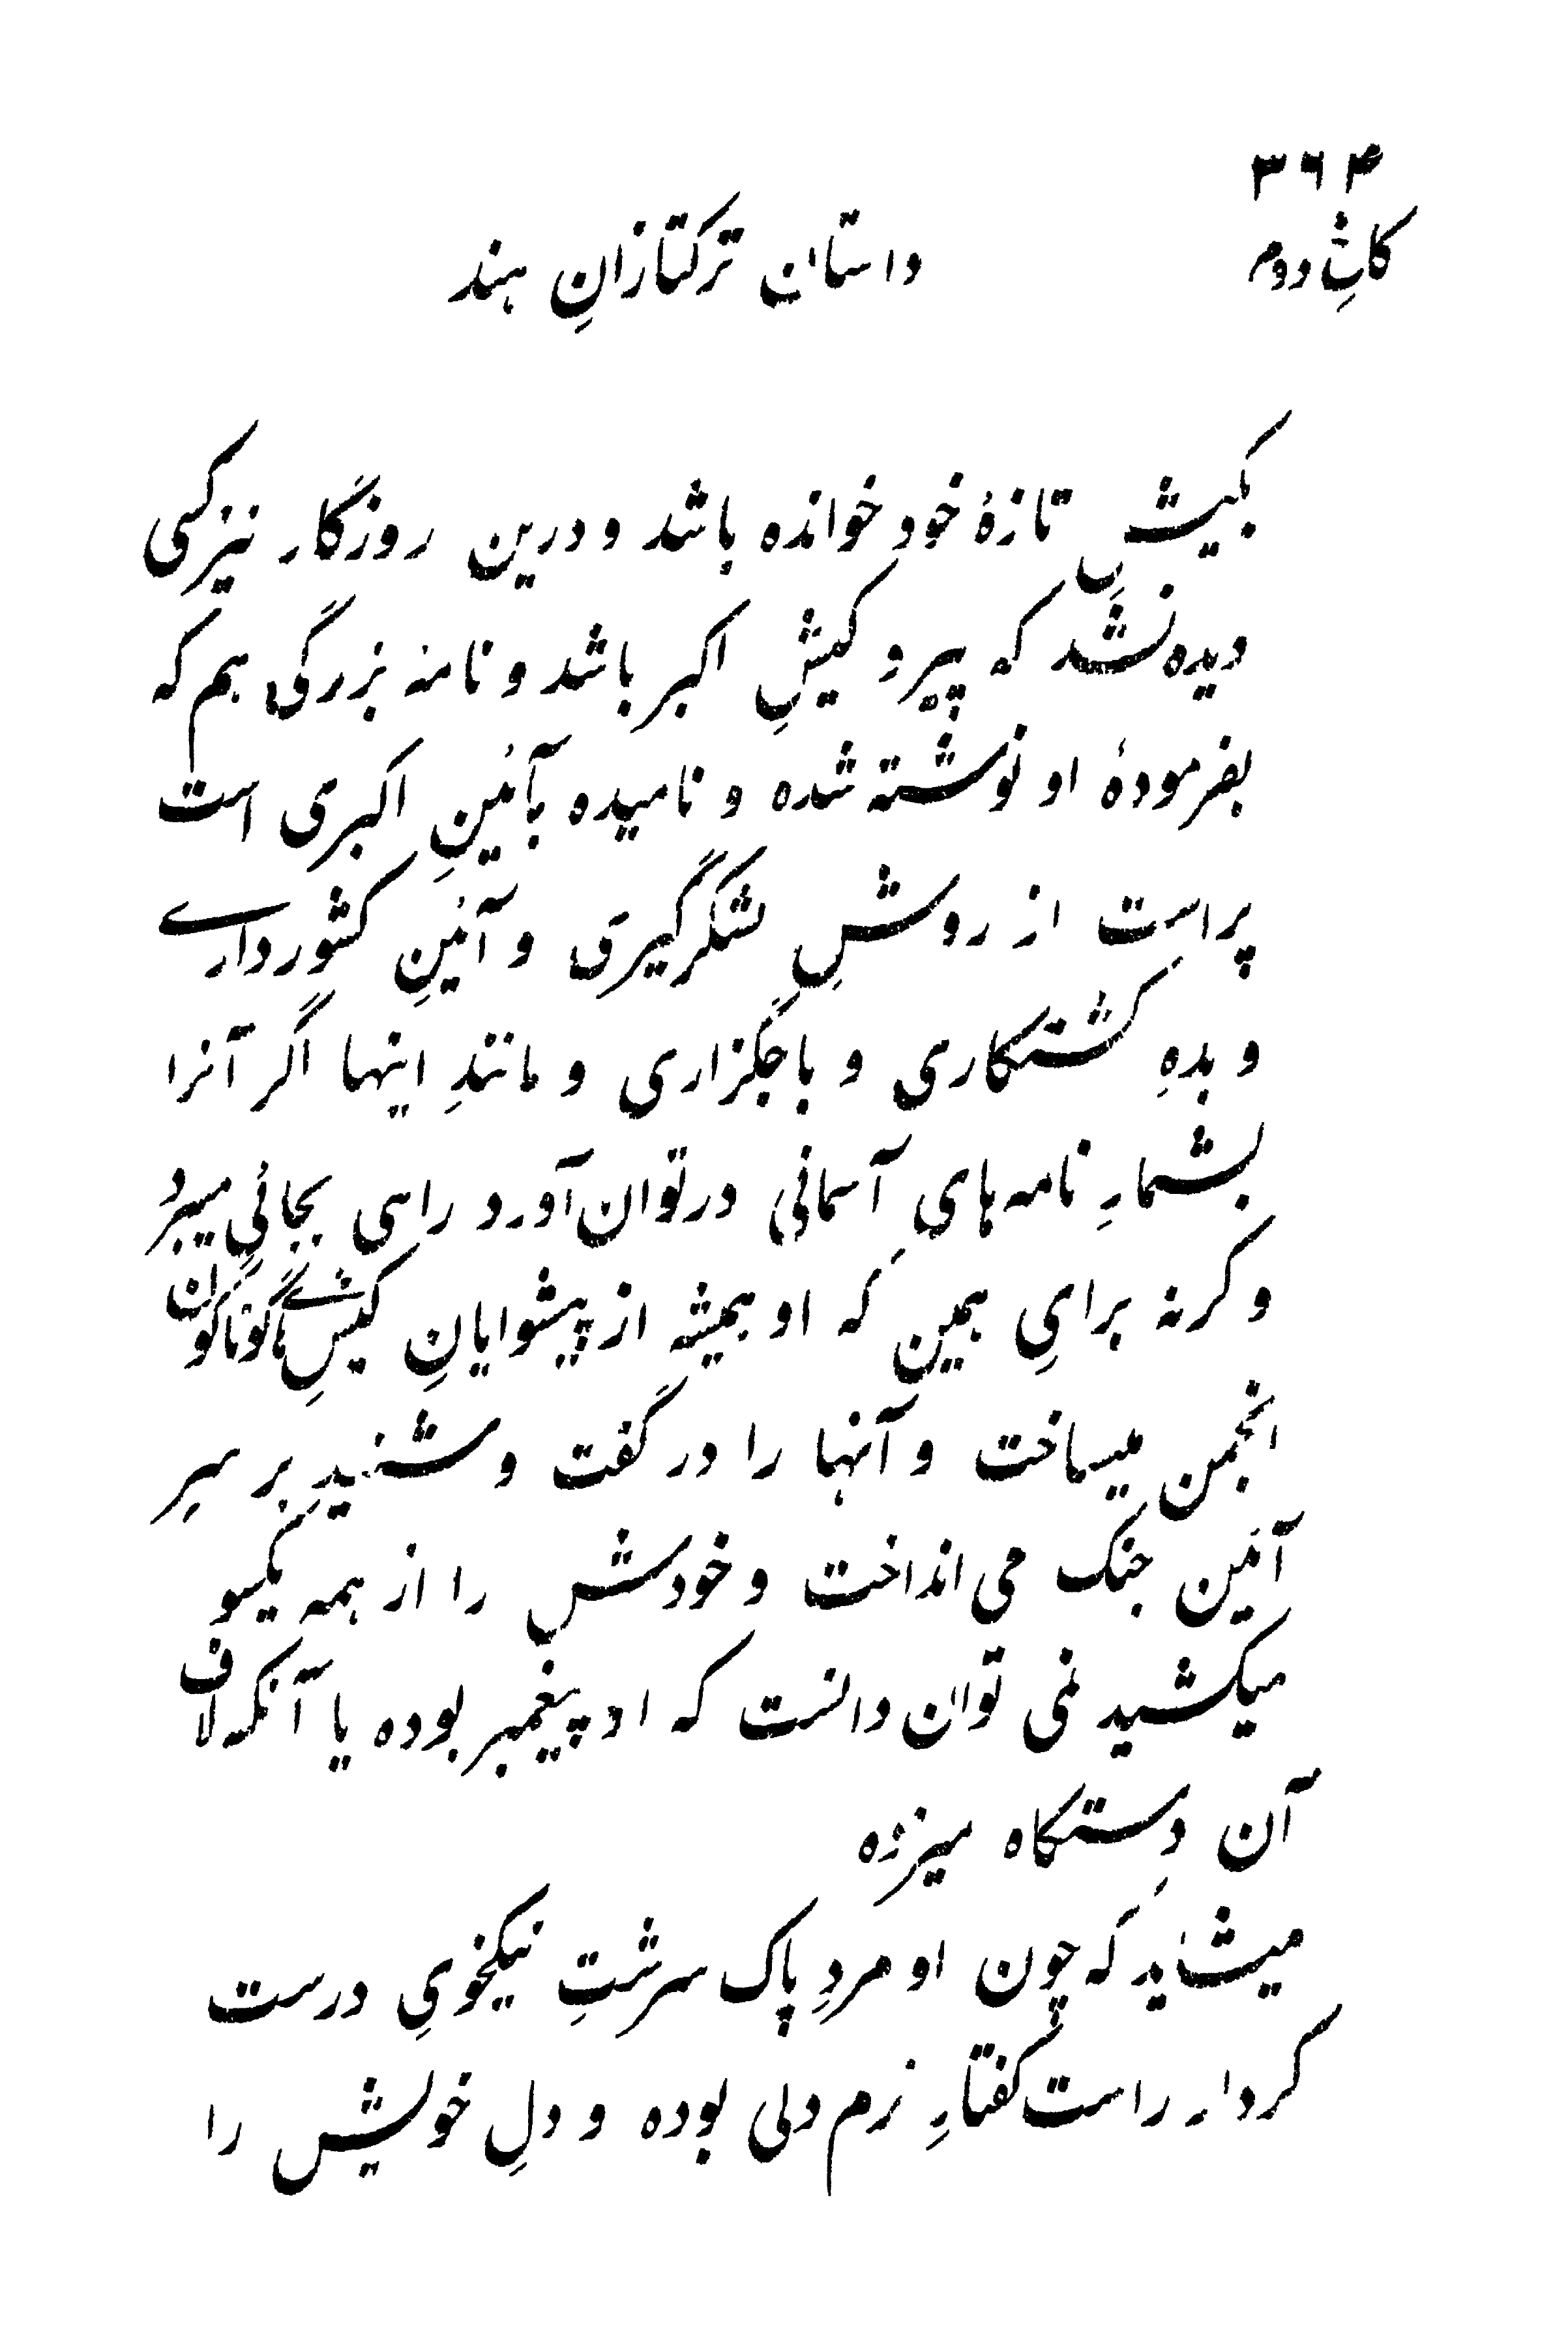 ۳۶۴
کاخ دوم
داستان ترکتازانِ هند
بکیشِ تازهٔ خود خوانده باشد و درین روزگار نیز کسی
دیده نشد که پیرو کیشِ اکبر باشد و نامه بزرگی هم که
بفرمودهٔ او نوشته شده و نامیده بآئینِ اکبری است
پراست از روشِ لشکرگیری و آئینِ کشورداری
و بدهِ کشتکاری و باجگزاری و مانندِ اینها اگر آنرا
بشمارِ نامه‌هایِ آسمانی در توان آورد راهی بجائی میبرد
وگرنه برایِ همین که او همیشه از پیشوایانِ کیشِ‌های گوناگون
انجمن میساخت و آنها را در گفت و شنید بر سرِ
آئین جنگ می انداخت و خودش را از همه یکسو
میکشید نمی توان دانست که او پیغمبر بوده یا آنکه لاف
آن دستگاه میزده
میشاید که چون او مردِ پاک سرشتِ نیکخویِ درست
کردار راست گفتارِ نرم دلی بوده و دلِ خویش را